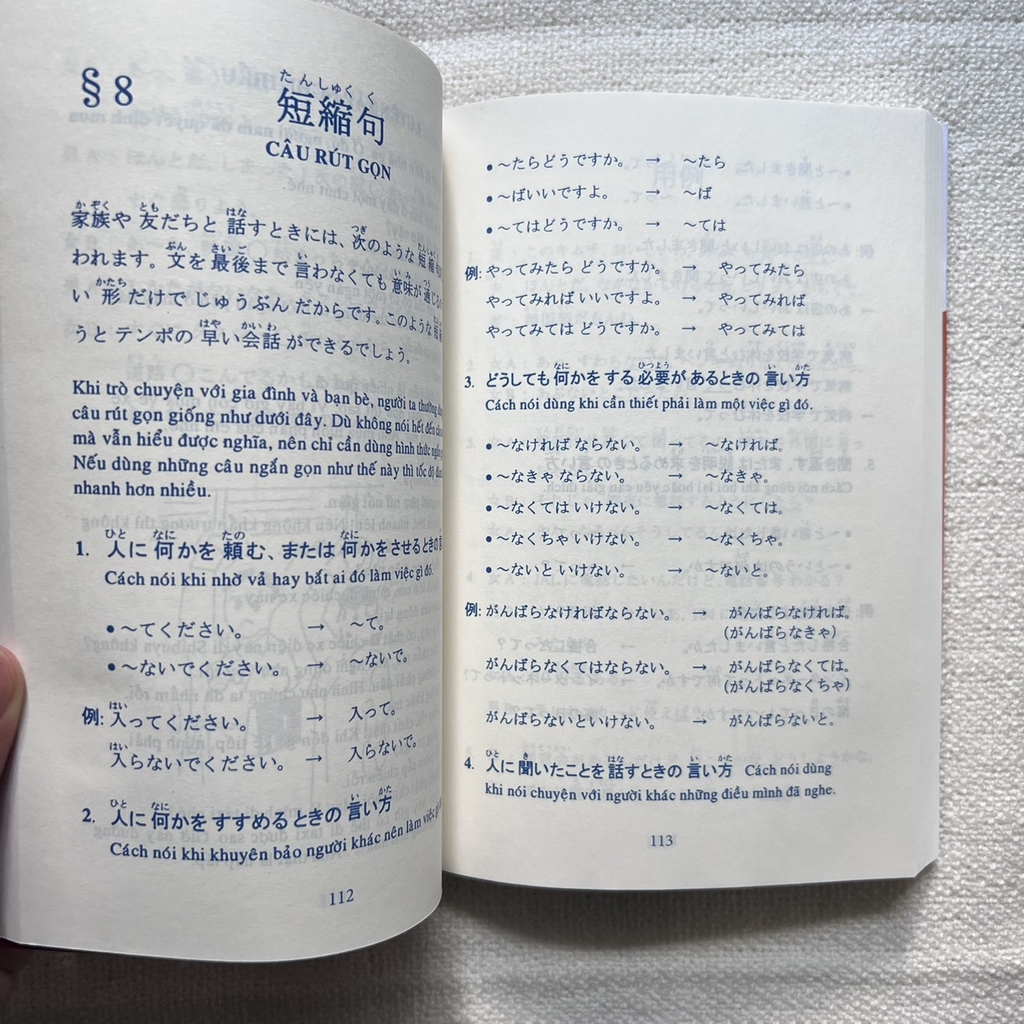 §8
たんしゅく く
短縮句
CÂU RÚT GỌN
かぞく とも はな つぎ
家族や 友だちと 話すときには、次のような 短縮句
ぶん さいご い いみ つう
われます。文を 最後まで 言わなくても 意味が 通じ
かたち
い 形 だけで じゅうぶん だからです。このような 短
はや かいわ
うと テンポの 早い 会話 ができるでしょう。
Khi trò chuyện với gia đình và bạn bè, người ta thường
câu rút gọn giống như dưới đây. Dù không nói hết đến
mà vẫn hiểu được nghĩa, nên chỉ cần dùng hình thức
Nếu dùng những câu ngắn gọn như thế này thì tốc độ
nhanh hơn nhiều.
ひと なに たの なに
1. 人に 何かを 頼む、または 何かをさせるときの
Cách nói khi nhờ vả hay bắt ai đó làm việc gì đó.
• ～てください。 → ～て。
• ～ないでください。 → ～ないで。
はい
例: 入ってください。 → 入って。
はい
入らないでください。 → 入らないで。
ひと なに い かた
2. 人に 何かを すすめる ときの 言い方
Cách nói khi khuyên bảo người khác nên làm việc
112
• ～たらどうですか。 → ～たら
• ～ばいいですよ。 → ～ば
• ～てはどうですか。 → ～ては
例: やってみたら どうですか。 → やってみたら
やってみれば いいですよ。 → やってみれば
やってみては どうですか。 → やってみては
なに ひつよう い かた
3. どうしても 何かを する 必要が あるときの 言い方
Cách nói dùng khi cần thiết phải làm một việc gì đó.
• ～なければ ならない。 → ～なければ。
• ～なきゃ ならない。 → ～なきゃ。
• ～なくては いけない。 → ～なくては。
• ～なくちゃ いけない。 → ～なくちゃ。
• ～ないと いけない。 → ～ないと。
例: がんばらなければならない。 → がんばらなければ。
(がんばらなきゃ)
がんばらなくてはならない。 → がんばらなくては。
(がんばらなくちゃ)
がんばらないといけない。 → がんばらないと。
ひと き はな い かた
4. 人に 聞いたことを 話すときの 言い方 Cách nói dùng
khi nói chuyện với người khác những điều mình đã nghe.
113